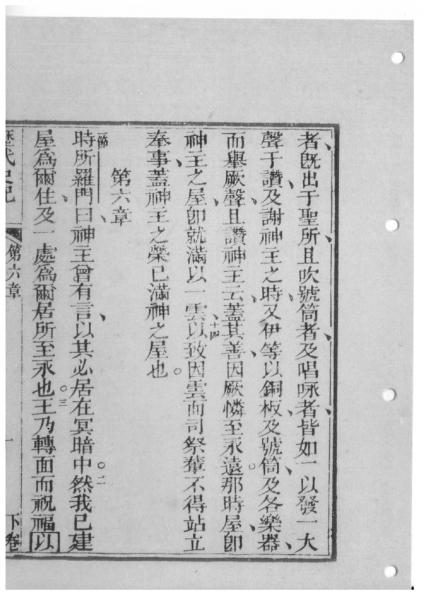 者旣出于聖所且吹號筒者及唱咏者皆如一以發一大
聲于讚及謝神主之時又伊等以銅板及號筒及各樂器
而舉厥聲且讚神主云蓋其善因厥憐至永遠那時屋卽
神主之屋卽就滿以一雲十四以致因雲而司祭輩不得站立
奉事蓋神主之榮已滿神之屋也
第六章
一節時所羅門曰神主曾有言以其必居在冥暗中二然我已建
屋爲爾住及一處爲爾居所至永也三王乃轉面而祝福以
歷代史記 第六章 一 下卷